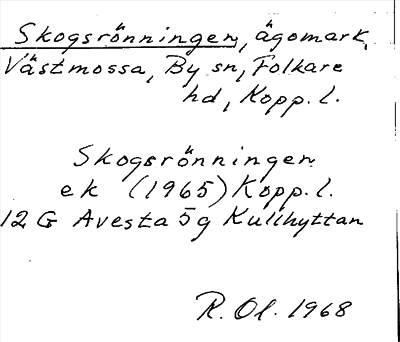 Skogsrönningen, ägomark,
Västmossa, By sn, Folkare
hd, Kopp. l.
Skogsrönningen
ek (1965) Kopp. l.
12 G Avesta 5 g Kullhyttan
R. Ol. 1968